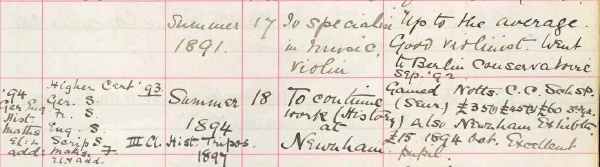 Summer 17 To specialise Up to the average.
1891. in music, Good violinist. Went
violin to Berlin Conservatoire
Sep. '92.
'94 Higher Cert '93. Gained Notts. C.C. Schsp.
Ger. S. Summer 18 To continue (Seur) £35 £45 £60 3 yrs.
Hist. Fr. S. work (History)
maths Eng. S. 1894 at also Newnham Exhibtn
Scrip S III Cl. Hist. Tripos Newnham £15 1894 Oct. Excellent
add. maths. 7. 1897 pupil.